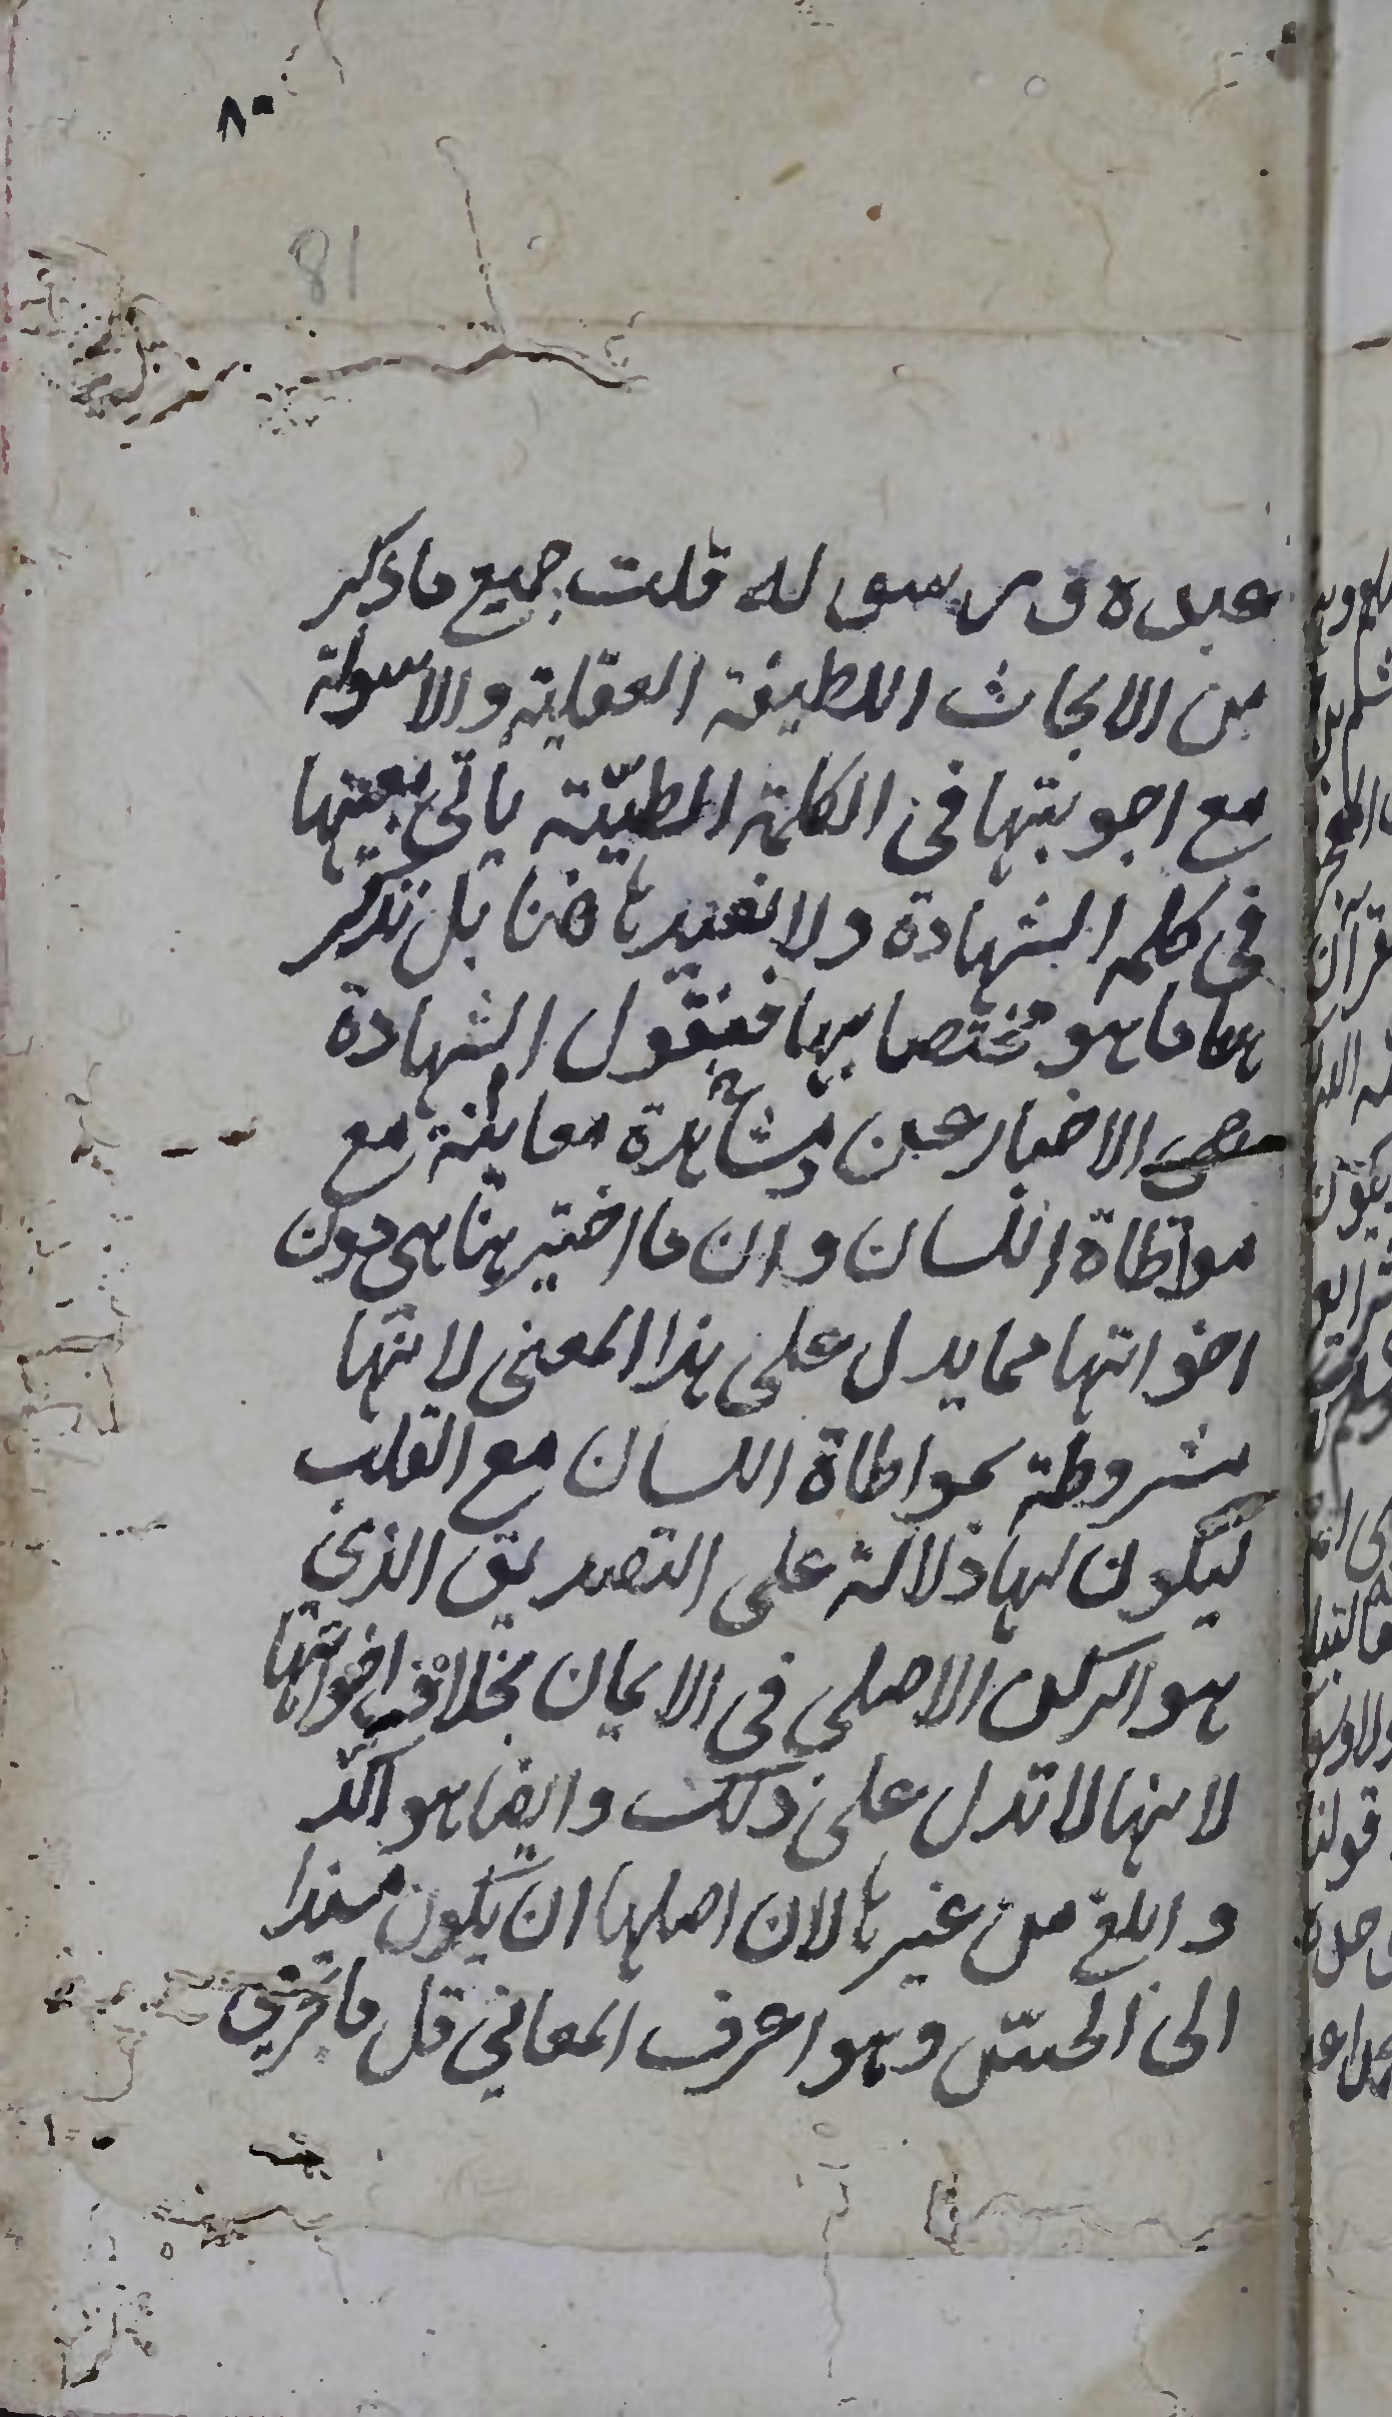 ٨٠
81
عبده و رسوله قلت جميع ما ذكر
من الابحاث اللطيفة العقلية والاسولة
مع اجوبتها في الكلمة الطيّبة ياتى بعينها
في كلمه الشهادة ولا نعيدها هنا بل نذكر
هنا ما هو مختصا بها فنقول الشهادة
هى الاخبار عن مشاهدة معاينة مع
مواطاة اللسان وان ما اختير هنا هى دون
اخواتها مما يدل على هذا المعنى لانها
مشروطة بمواطاة اللسان مع القلب
ليكون لها دلالة على التصديق الذي
هو الركن الاصلي في الايمان بخلاف اخواتها
لانها لا تدل على ذلك وايضا هو آكد
وابلغ من غيرها لان اصلها ان يكون مبدا
الى الحسّ وهو اعرف المعاني قل ما